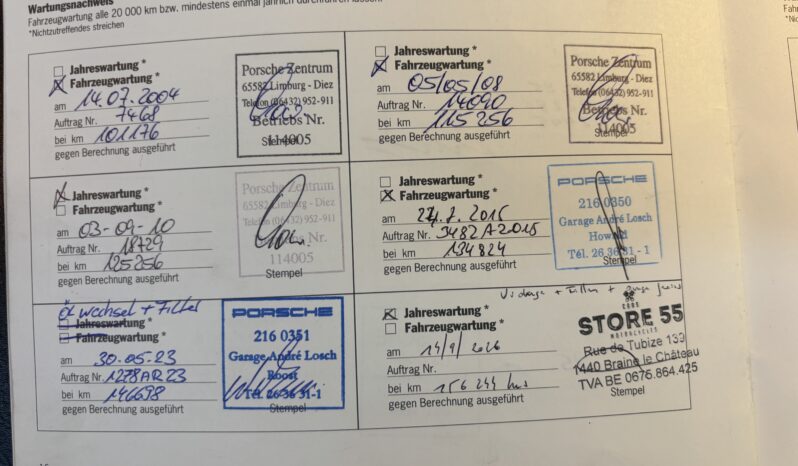 Wartungsnachweis
Fahrzeugwartung alle 20 000 km bzw. mindestens einmal jährlich durchführen lassen.
*Nichtzutreffendes streichen
Jahreswartung *
Fahrzeugwartung *
am 14.07.2004
Auftrag Nr. 7468
bei km 101176
gegen Berechnung ausgeführt
Porsche Zentrum
65582 Limburg - Diez
Telefon (06432) 952-911
Betriebs Nr.
114005
Stempel
Jahreswartung *
Fahrzeugwartung *
am 05/05/08
Auftrag Nr. 14090
bei km 115256
gegen Berechnung ausgeführt
Porsche Zentrum
65582 Limburg - Diez
Telefon (06432) 952-911
Betriebs Nr.
114005
Stempel
Jahreswartung *
Fahrzeugwartung *
am 03-09-10
Auftrag Nr. 18729
bei km 125256
gegen Berechnung ausgeführt
Porsche Zentrum
65582 Limburg - Diez
Telefon (06432) 952-911
Betriebs Nr.
114005
Stempel
Jahreswartung *
Fahrzeugwartung *
am 7.2015
Auftrag Nr. 3482A2015
bei km 134824
gegen Berechnung ausgeführt
PORSCHE
216 0350
Garage André Losch
Howald
Tél. 26 36 31 - 1
Stempel
Öl wechsel + Filter
Jahreswartung *
Fahrzeugwartung *
am 30.05.23
Auftrag Nr. 1278AR23
bei km 146698
gegen Berechnung ausgeführt
PORSCHE
216 0351
Garage André Losch
Roost
Tél. 26 36 31-1
Stempel
Vidange + Filtres +
Jahreswartung *
Fahrzeugwartung *
am 19/9/
Auftrag Nr.
bei km 156 244 kms
gegen Berechnung ausgeführt
STORE 55
MOTORCYCLES
Rue de Tubize 133
1440 Braine le Château
TVA BE 0675.864.425
Stempel